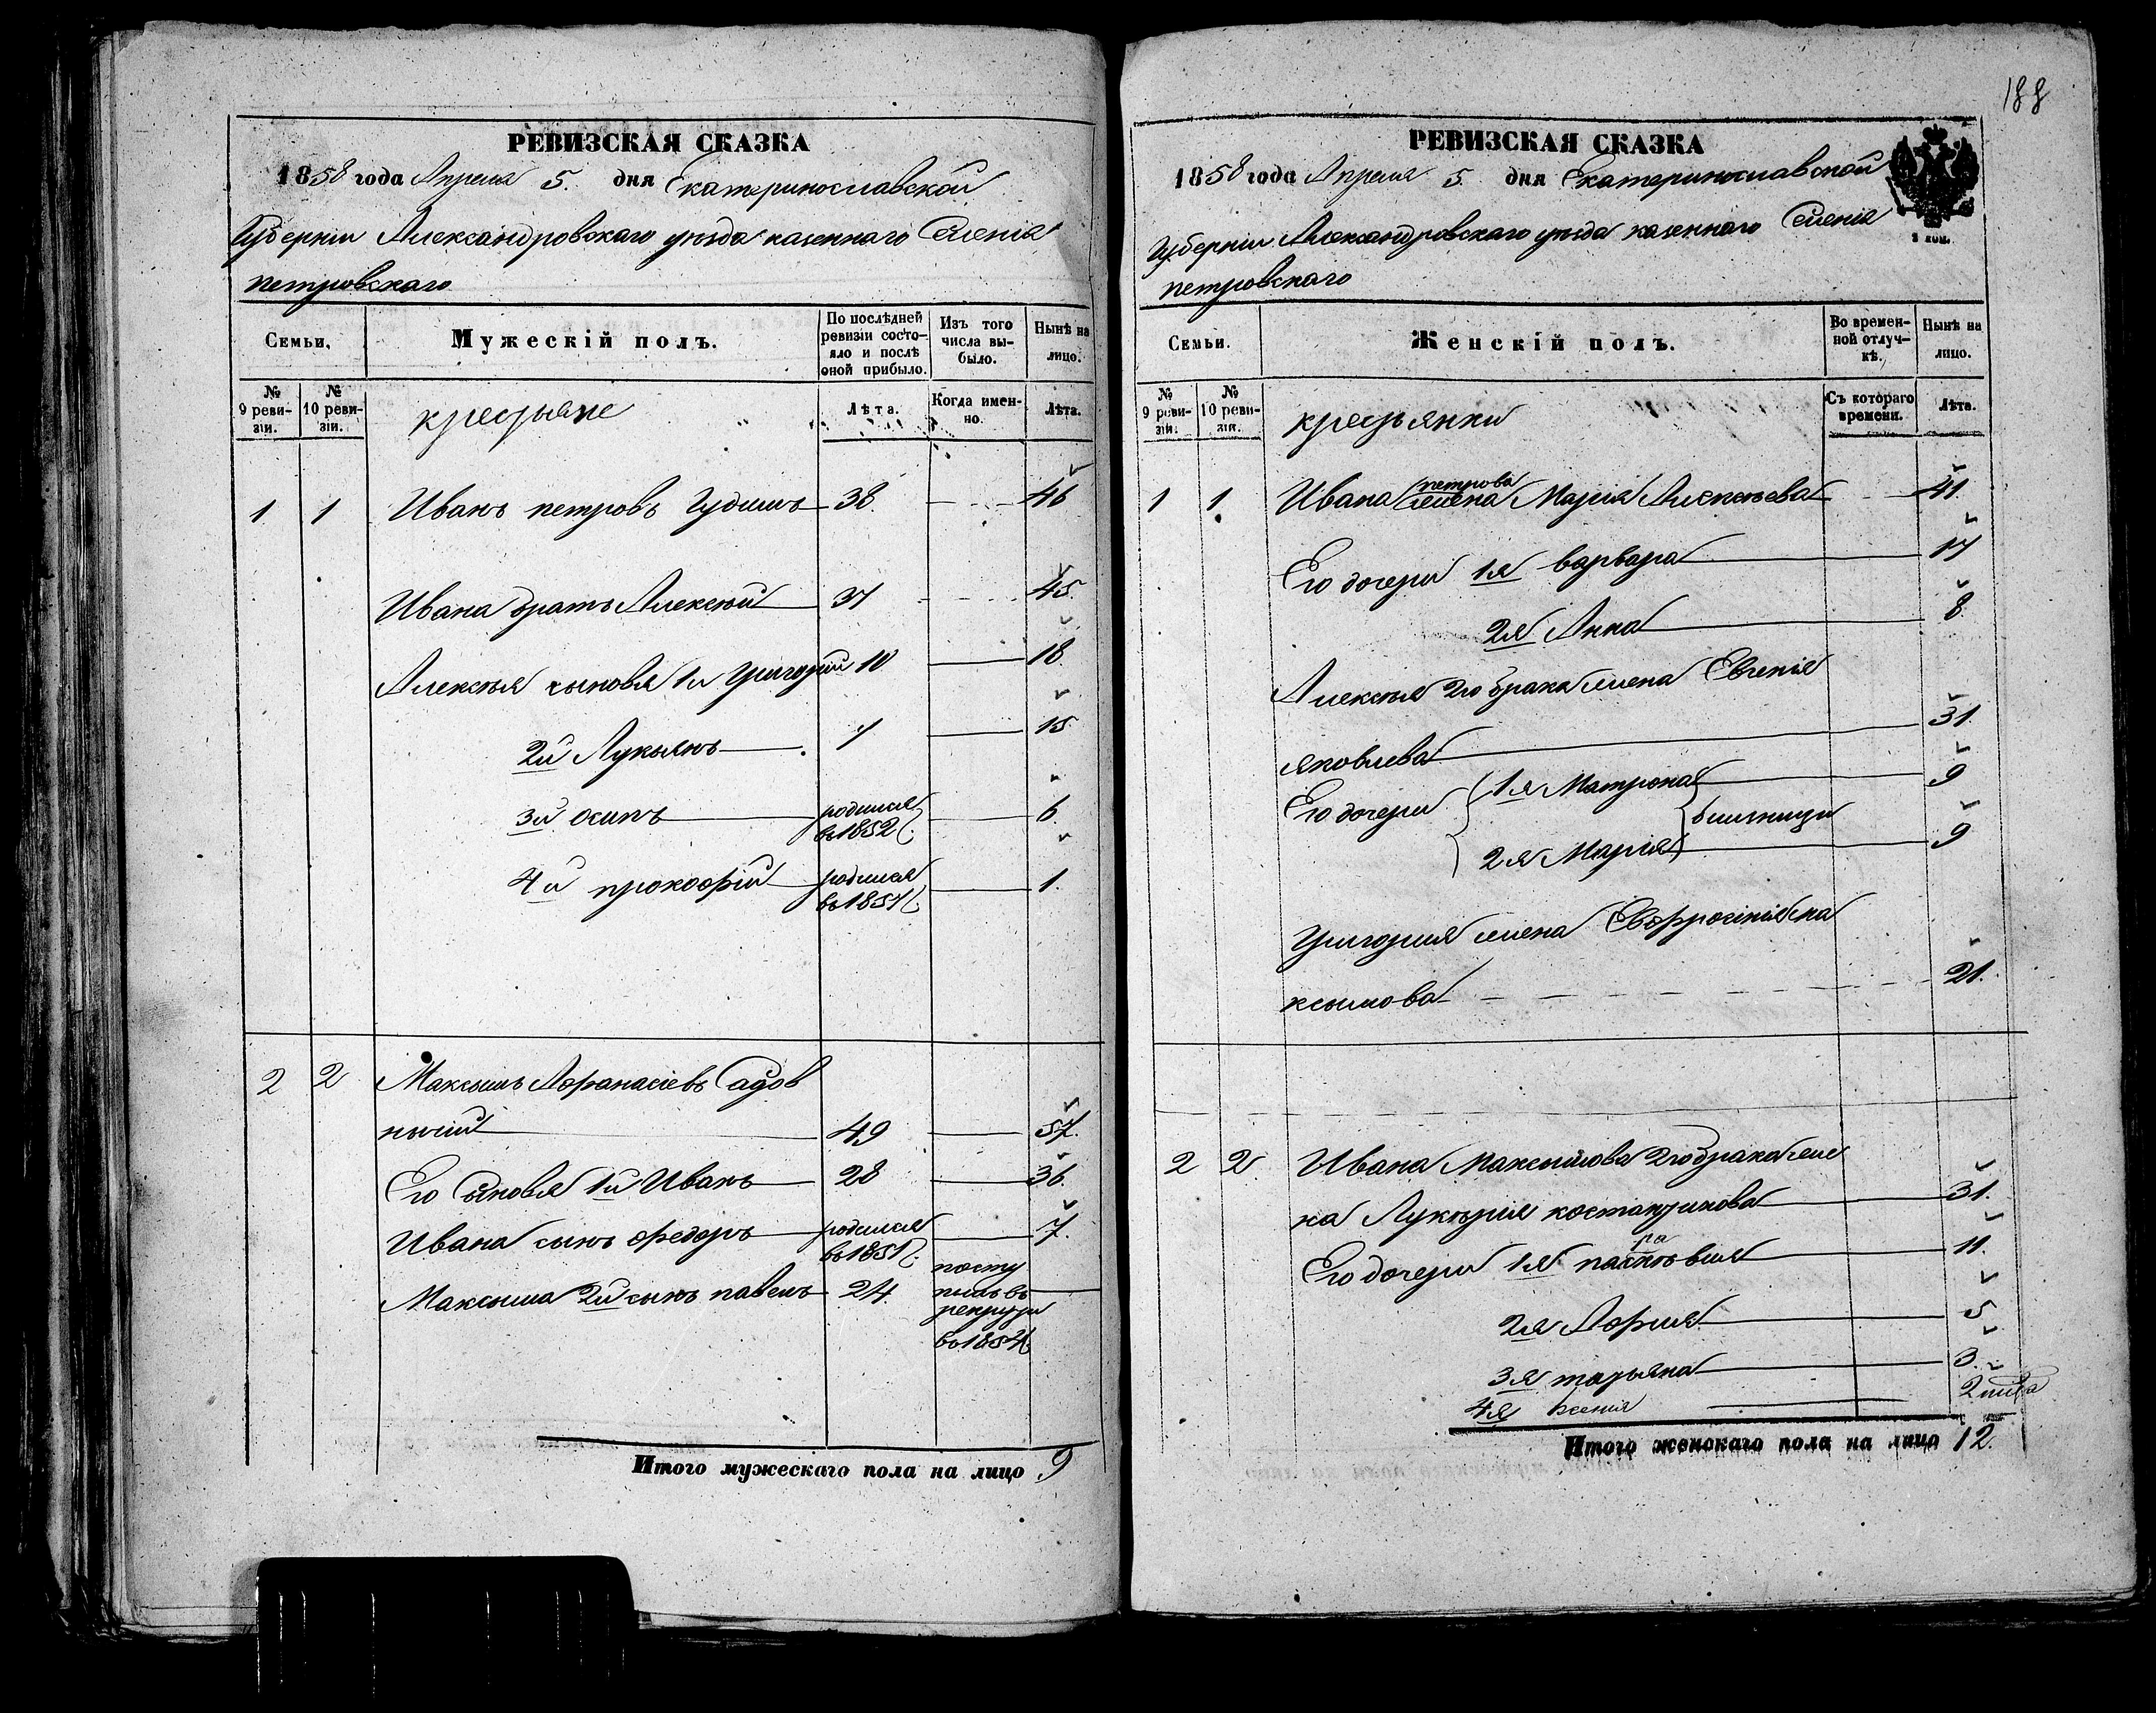 188
РЕВИЗСКАЯ СКАЗКА
1858 года Апреля 5. дня Екатеринославской
Губерніи Александровскаго уѣзда казеннаго Селенія
петровскаго
Семьи.
Мужескій полъ.
По послѣдней ревизіи состо-
яло и послѣ оной прибыло.
Изъ того числа вы-
было.
Нынѣ на лицо.
№ 9 реви-
зіи.
№ 10 реви-
зіи.
крестьяне
Лѣта.
Когда имен-
но.
Лѣта.
1 1 Иванъ петровъ Гудимъ 38. 46
Ивана братъ Алексѣй 37 45.
Алексѣя сыновья 1й Григорій 10 18.
2й Лукьянъ 7 15.
3й осипъ родился 6.
въ 1852 г.
4й прокофій родился 1.
въ 1857 г.
2 2 Максымъ Афанасіевъ Садов
ничій 49 57.
Его Сыновья 1й Иванъ 28 36.
Ивана сынъ федоръ родился 7.
въ 1851 г.
Максыма 2й сынъ павелъ 24. посту
пилъ въ
рекруты
въ 1854 г.
Итого мужескаго пола на лицо 9
РЕВИЗСКАЯ СКАЗКА
1858 года Апреля 5. дня Екатеринославской
Губерніи Александровскаго уѣзда казеннаго Селенія
петровскаго
1 коп.
Семьи.
Женскій полъ.
Во времен-
ной отлуч-
кѣ.
Нынѣ на лицо.
№ 9 реви-
зіи.
№ 10 реви-
зіи.
крестьянки
Съ котораго времени.
Лѣта.
петрова
1 1 Ивана жена Марія Алексѣева 41.
Его дочери 1я варвара 17
2я Анна 8.
Алексѣя 2го брака жена Евгенія
яковлева 31.
Его дочери 1я Матрона 9
близници
2я Марія 9
Григорія жена Евфросинія ма
ксымова 21.
2 2 Ивана Максымова 2го брака же
на Лукѣрия костантинова 31.
Его дочери 1я 11.
2я 5
3я татьяна 3.
4я Ксения 2
Итого женскаго пола на лицо 12.